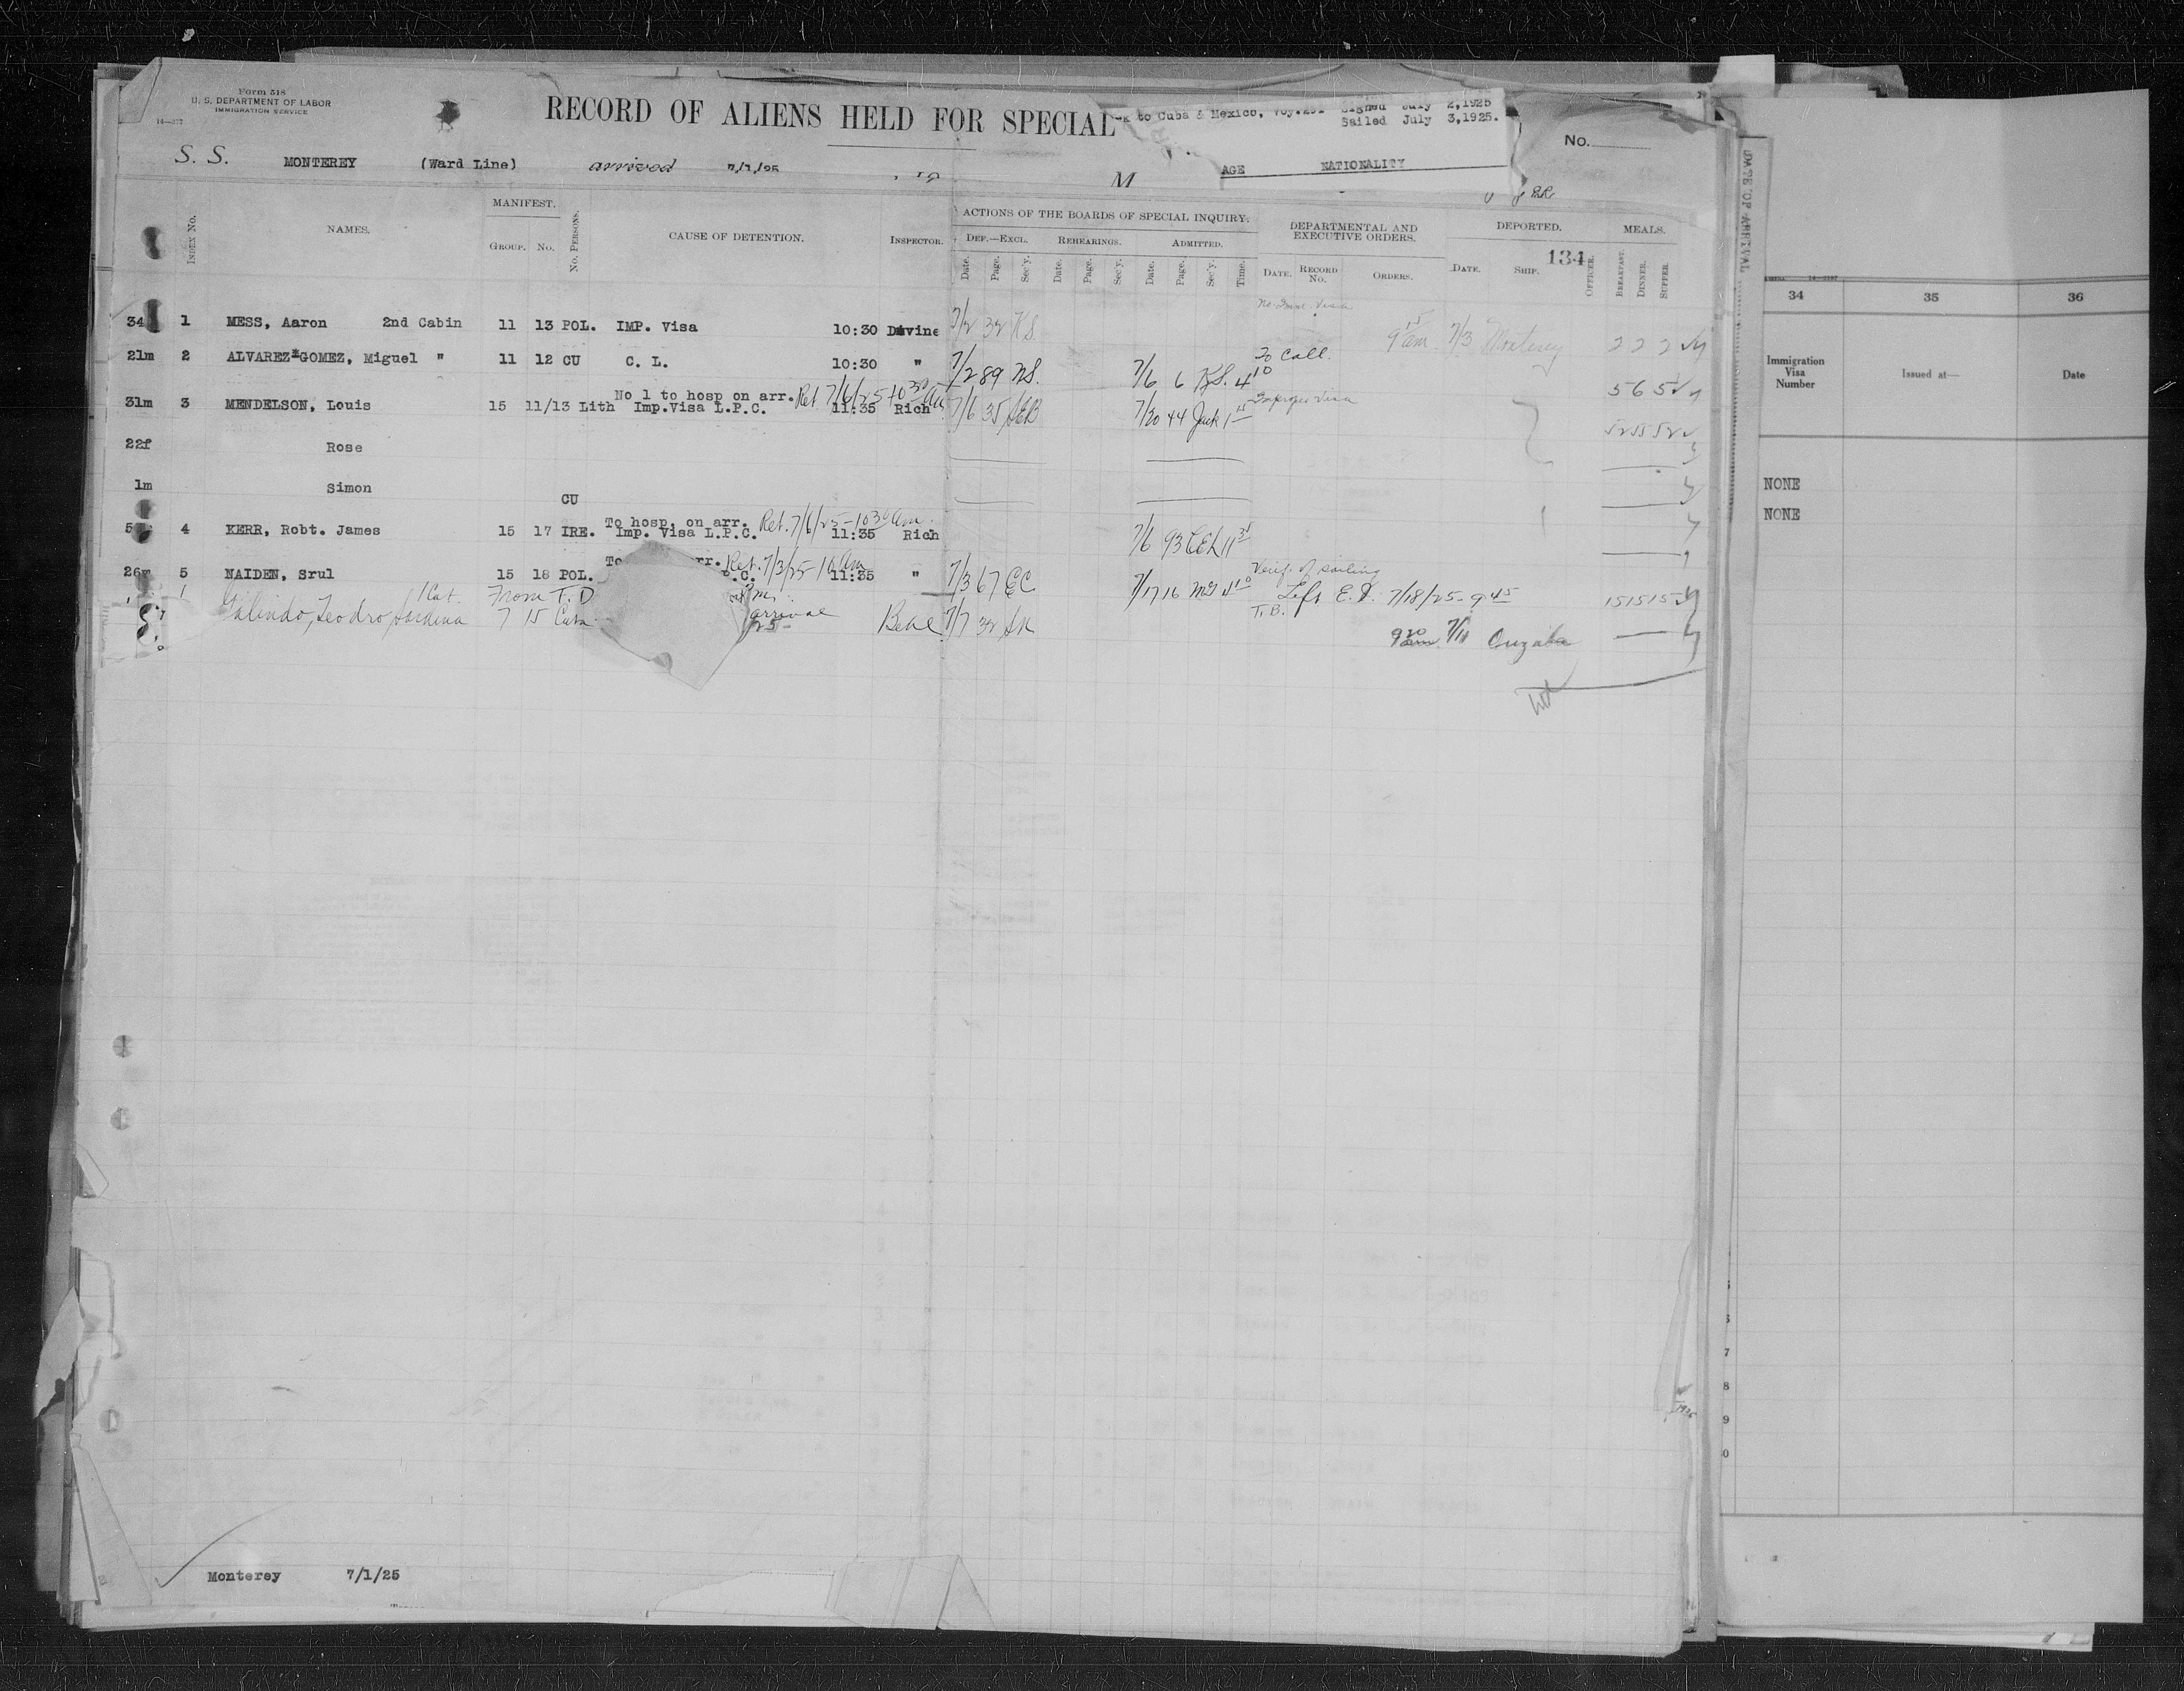 Form 518
U. S. DEPARTMENT OF LABOR
IMMIGRATION SERVICE
14—377
RECORD OF ALIENS HELD FOR SPECIAL
to Cuba & Mexico, Voy.
Signed July 2,1925
Sailed July 3,1925.
No.
S. S. MONTEREY (Ward Line) arrived 7/1/25
M
AGE NATIONALITY
INDEX No.
NAMES.
MANIFEST.
GROUP. No.
No. PERSONS.
CAUSE OF DETENTION.
INSPECTOR.
ACTIONS OF THE BOARDS OF SPECIAL INQUIRY.
DEF.—EXCL. REHEARINGS. ADMITTED.
Date. Page. Sec'y. Date. Page. Sec'y. Date. Page. Sec'y. Time.
DEPARTMENTAL AND EXECUTIVE ORDERS.
DATE. RECORD No. ORDERS.
DEPORTED.
DATE. SHIP. OFFICER.
134
MEALS.
BREAKFAST. DINNER. SUPPER.
34 1 MESS, Aaron 2nd Cabin 11 13 POL. IMP. Visa 10:30 Devine 7/2 32 KS. 9 15 am 7/3 Monterey 2 2 2
21m 2 ALVAREZ GOMEZ, Miguel " 11 12 CU C. L. 10:30 " 7/2 89 NS. 7/6 6 KS. 4 10 To Call. 5 6 5
No 1 to hosp on arr. Ret 7/6/25 10 30 am
31m 3 MENDELSON, Louis 15 11/13 Lith Imp.Visa L.P.C. 11:35 Rich 7/6 35 SEB 7/20 44 Jack 1 15 Improper Visa
22f Rose
1m Simon
CU
To hosp. on arr. Ret. 7/6/25-10 30 am.
4 KERR, Robt. James 15 17 IRE. Imp. Visa L.P.C. 11:35 Rich 7/6 93 CEL 11 35
To arr. Ret. 7/3/25- 10 am
26m 5 NAIDEN, Srul 15 18 POL. P.C. 11:35 " 7/3 67 EC 7/17 16 4 10 Verif. of sailing Left E.I. 7/18/25-9 45 15 15 15
1 Cat. From T.D
Galindo, Teodro, Sardina 7 15 Cuba arrival Beal 7/7 32 T.B. 9 30 am 7/11 Orizaba
Monterey 7/1/25
DATE OF ARRIVAL
34 35 36
Immigration Visa Number
Issued at—
Date
NONE
NONE
7
8
9